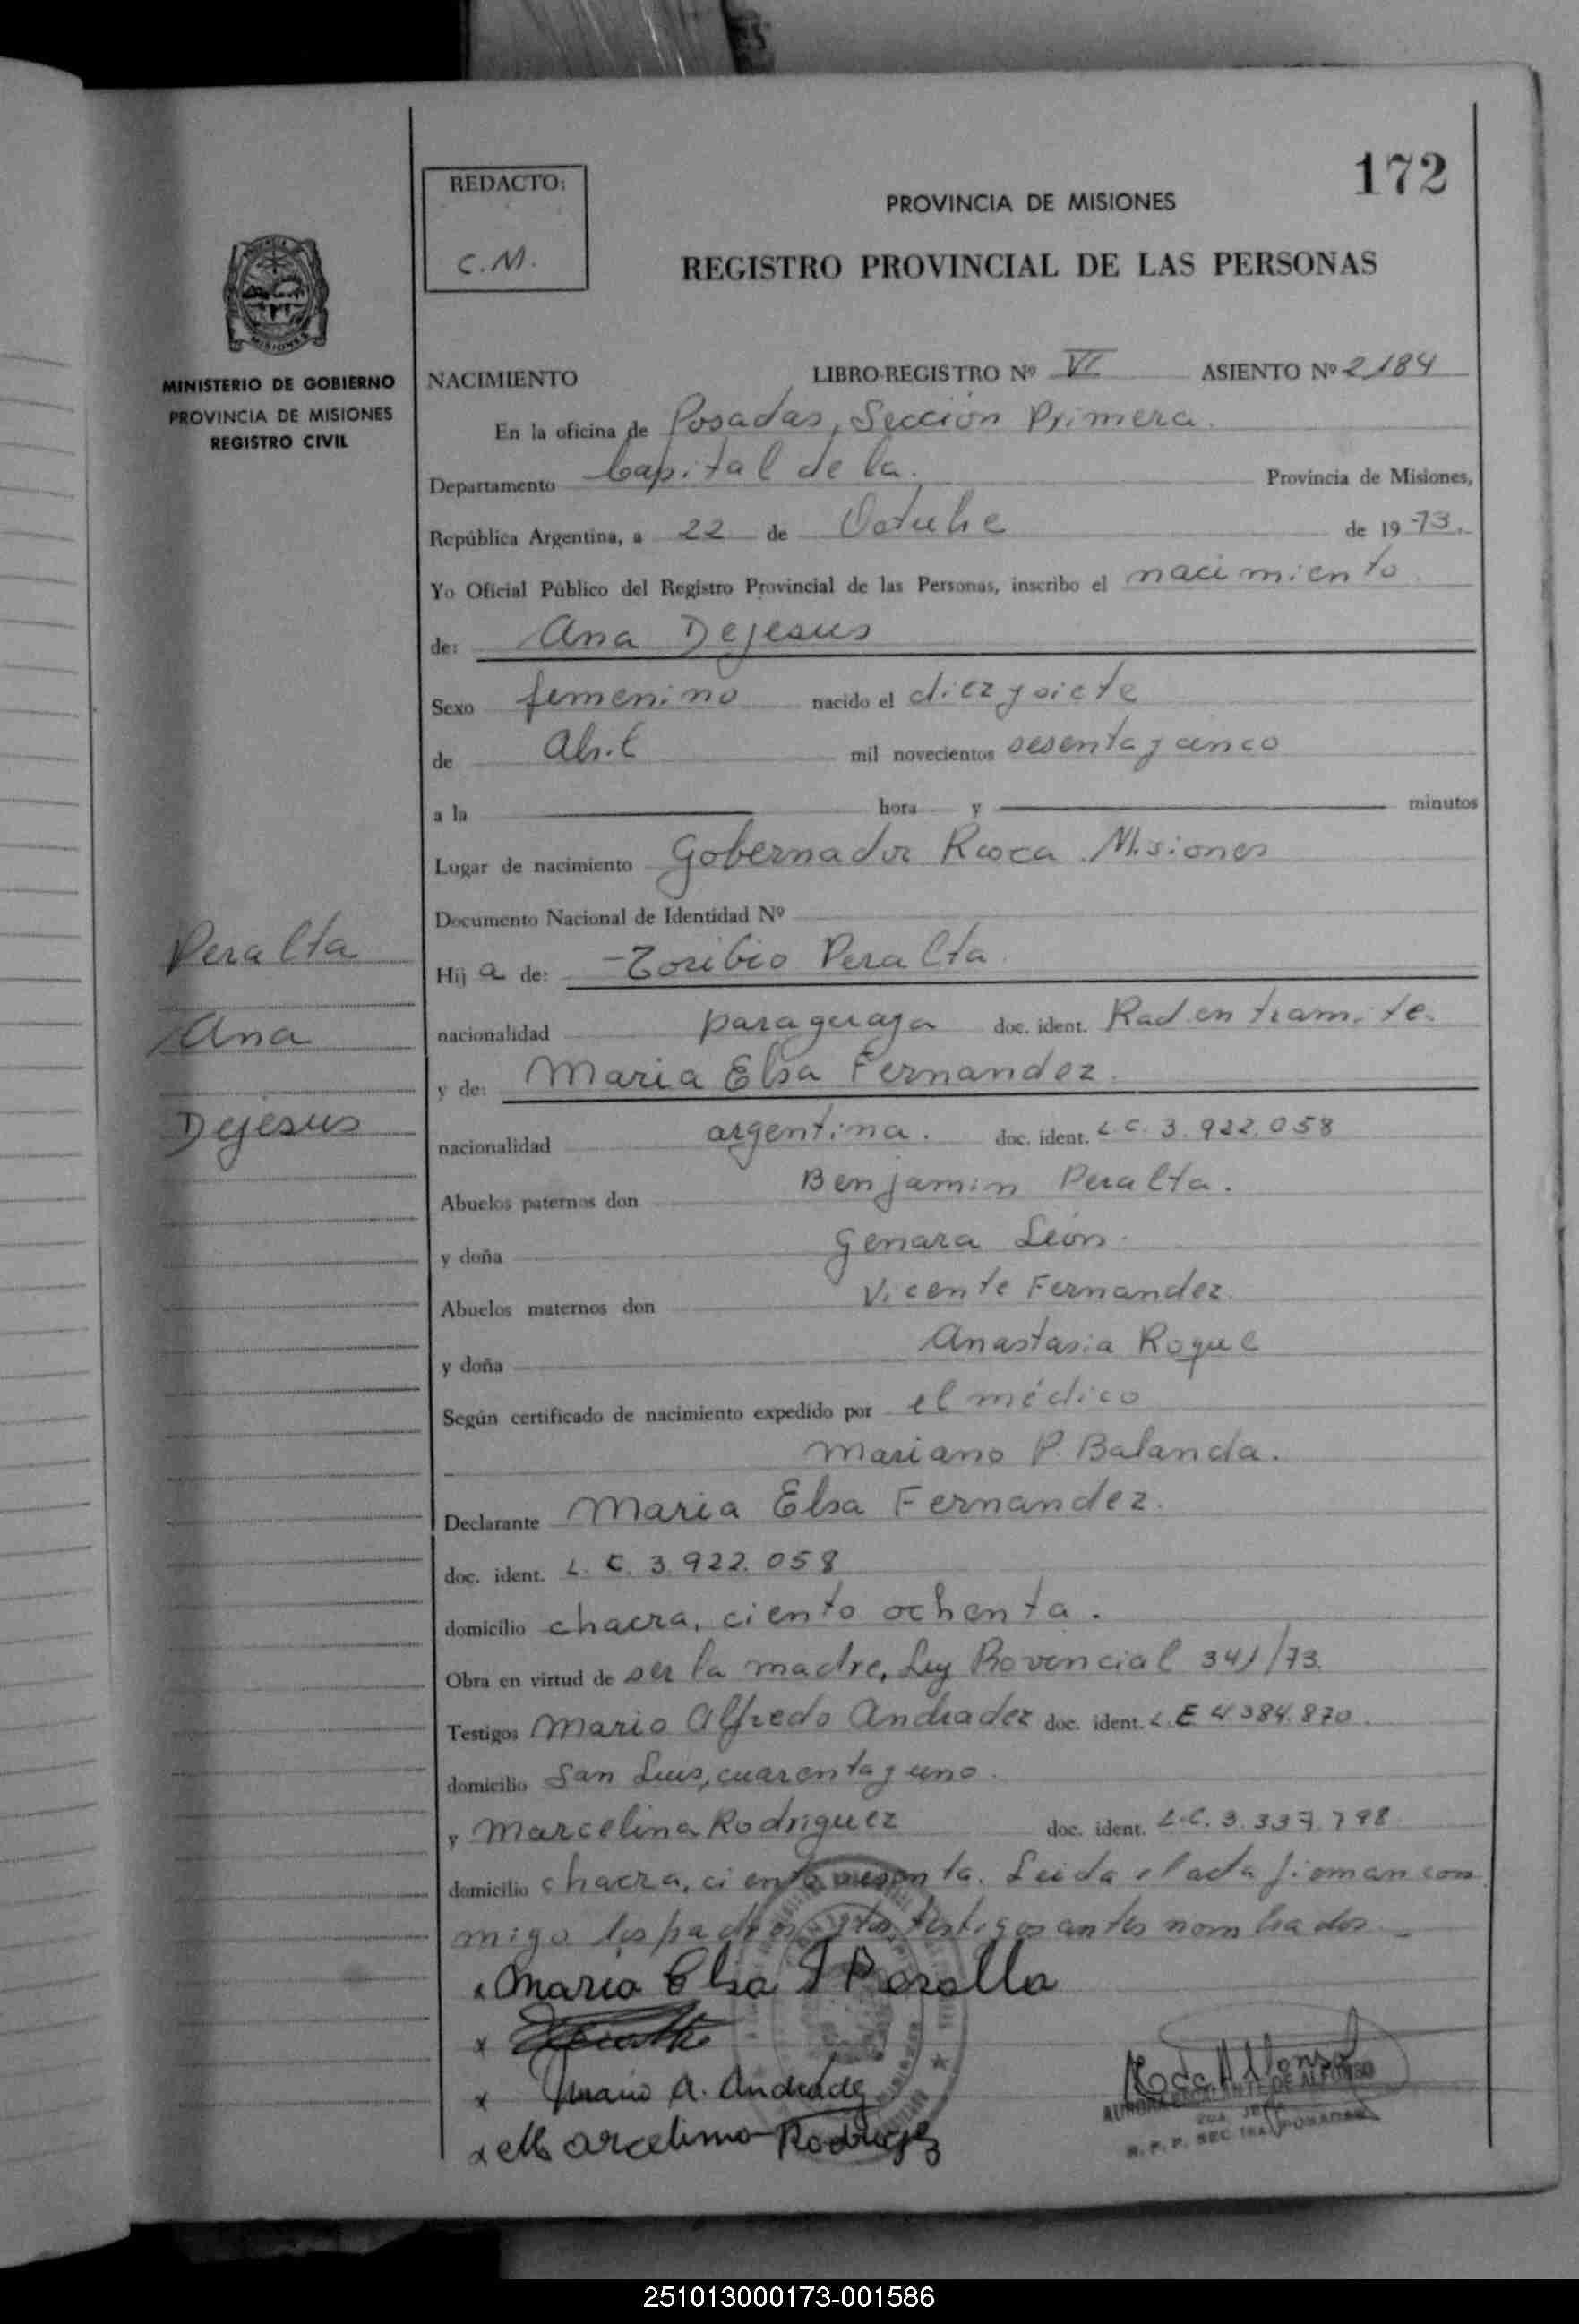 172
REDACTO:
C.M.
PROVINCIA DE MISIONES
REGISTRO PROVINCIAL DE LAS PERSONAS
MISIONES
MINISTERIO DE GOBIERNO
PROVINCIA DE MISIONES
REGISTRO CIVIL
NACIMIENTO LIBRO-REGISTRO Nº VI ASIENTO Nº 2184
En la oficina de Posadas, Sección Primera.
Departamento Capital de la. Provincia de Misiones,
República Argentina, a 22 de Octubre de 19 73.
Yo Oficial Público del Registro Provincial de las Personas, inscribo el nacimiento
de: Ana Dejesus
Sexo femenino nacido el diez y siete
de Abril mil novecientos sesenta y cinco
a la hora y minutos
Lugar de nacimiento Gobernador Roca. Misiones
Documento Nacional de Identidad Nº
Peralta
Ana
Dejesus
Hij a de: Toribio Peralta
nacionalidad paraguaya doc. ident. Rad. en tramite.
y de: Maria Elsa Fernandez.
nacionalidad argentina. doc. ident. L C. 3.922.058
Abuelos paternos don Benjamin Peralta.
y doña Genara León.
Abuelos maternos don Vicente Fernandez.
y doña Anastasia Roque
Según certificado de nacimiento expedido por el médico
Mariano P. Balanda.
Declarante Maria Elsa Fernandez.
doc. ident. L. C. 3.922.058
domicilio chacra, ciento ochenta.
Obra en virtud de ser la madre, Ley Provincial 341/73.
Testigos Mario Alfredo Andradez doc. ident. L.E 4.384.870
domicilio San Luis, cuarenta y uno.
y Marcelina Rodriguez doc. ident. L.C. 3.337.798
domicilio chacra, ciento sesenta. Leida el acta firman con
migo los padres y los testigos antes nombrados.
x Maria Elsa F Peralta
x
x Mario A. Andradez
x Marcelina Rodriguez
AURORA ESCALANTE DE ALFONSO
2DA JEFA
R. P. P. SEC 1RA POSADAS
251013000173-001586